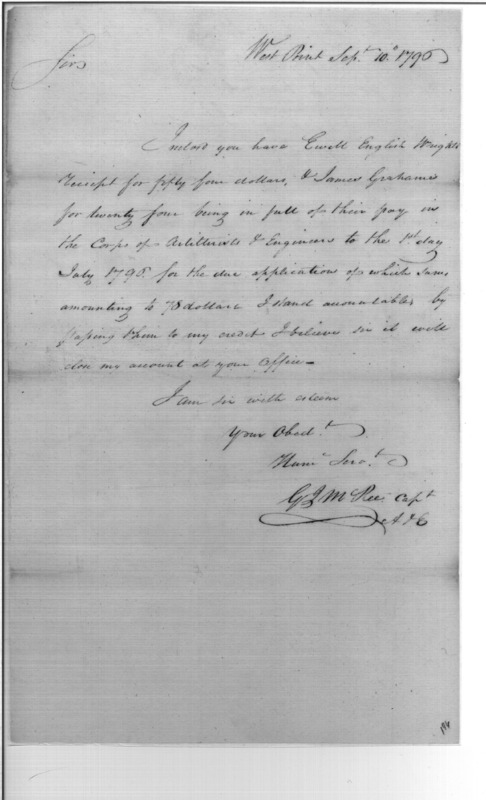 West Point Sept. 10th 1796
Sir
Inclosd you have Ewell English Wrights
receipt for fifty four dollars, & James Grahams
for twenty four being in full of their pay in
the Corps of Artillerists & Engineers to the 1st day
July 1795 for the due application of which sums
amounting to 78 dollars I stand accountable, by
passing them to my credit I believe sir it will
close my account at your office-
I am sir with esteem
Your Obedt.
Hume Servt.
G J McRee Capt
A & E